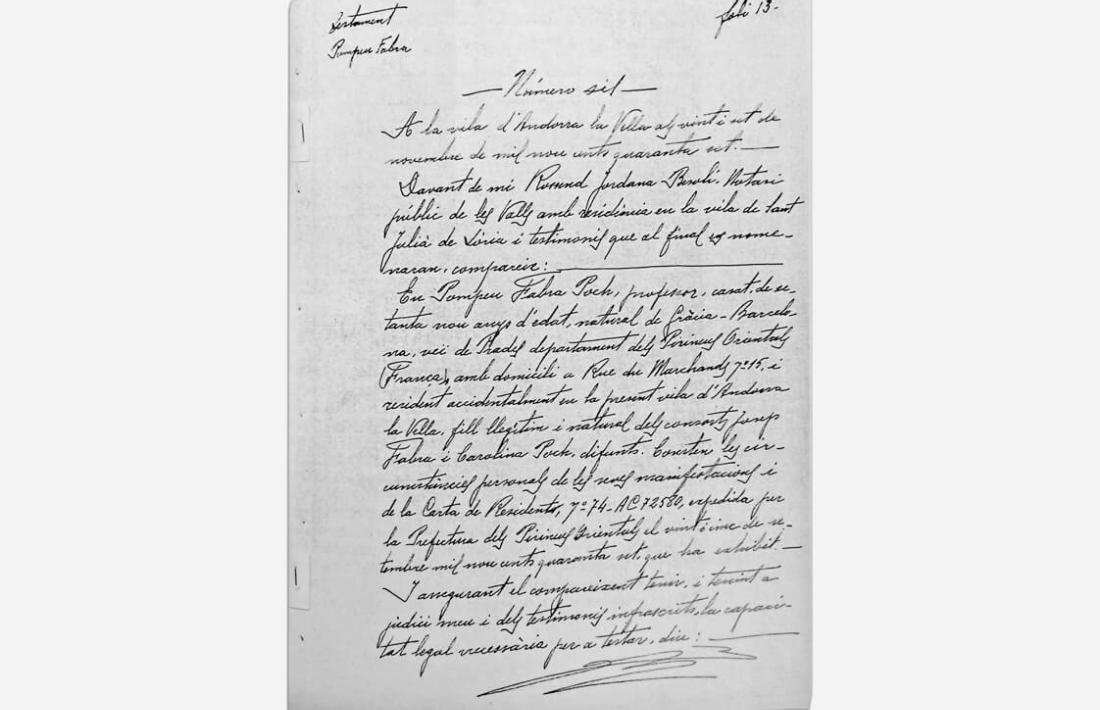 Testament
Pompeu Fabra
foli 13.
— Número sis —
A la vila d'Andorra la Vella als vint i set de
novembre de mil nou cents quaranta set. —
Davant de mi Rosend Jordana Besolí, Notari
públic de les Valls amb residència en la vila de Sant
Julià de Lòria i testimonis que al final es nome-
naran, compareix: —
En Pompeu Fabra Poch, professor, casat, de se-
tanta nou anys d'edat, natural de Gràcia - Barcelo-
na, veï de Prades departament dels Pirineus Orientals
(França), amb domicili a Rue du Marchands nº 15, i
resident accidentalment en la present vila d'Andorra
la Vella, fill llegítim i natural dels consorts Josep
Fabra i Carolina Poch, difunts. Consten les cir-
cumstàncies personals de les seves manifestacions i
de la Carta de Residents, nº 74-AC72580, expedida per
la Prefectura dels Pirineus Orientals el vint i cinc de se-
tembre mil nou cents quaranta set, que ha exhibit. —
I assegurant el compareixent tenir, i tenint a
judici meu i dels testimonis infrascrits, la capaci-
tat legal necessària per a testar, diu: —